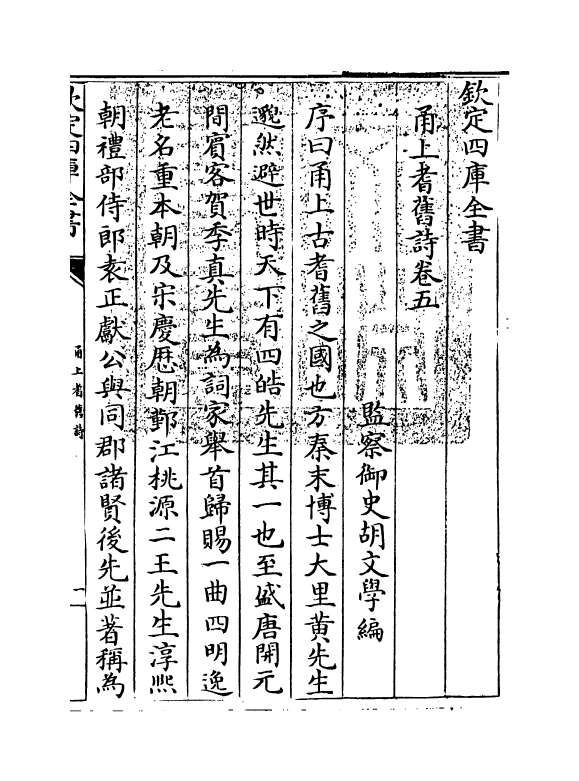 欽定四庫全書
甬上耆舊詩卷五
監察御史胡文學編
序曰甬上古耆舊之國也方秦末博士大里黄先生
邈然避世時天下有四皓先生其一也至盛唐開元
間賓客賀季真先生為詞家舉首歸賜一曲四明逸
老名重本朝及宋慶厯朝鄞江桃源二王先生淳熙
朝禮部侍郎袁正獻公與同郡諸賢後先並著稱為
欽定四庫全書
甬上耆舊詩